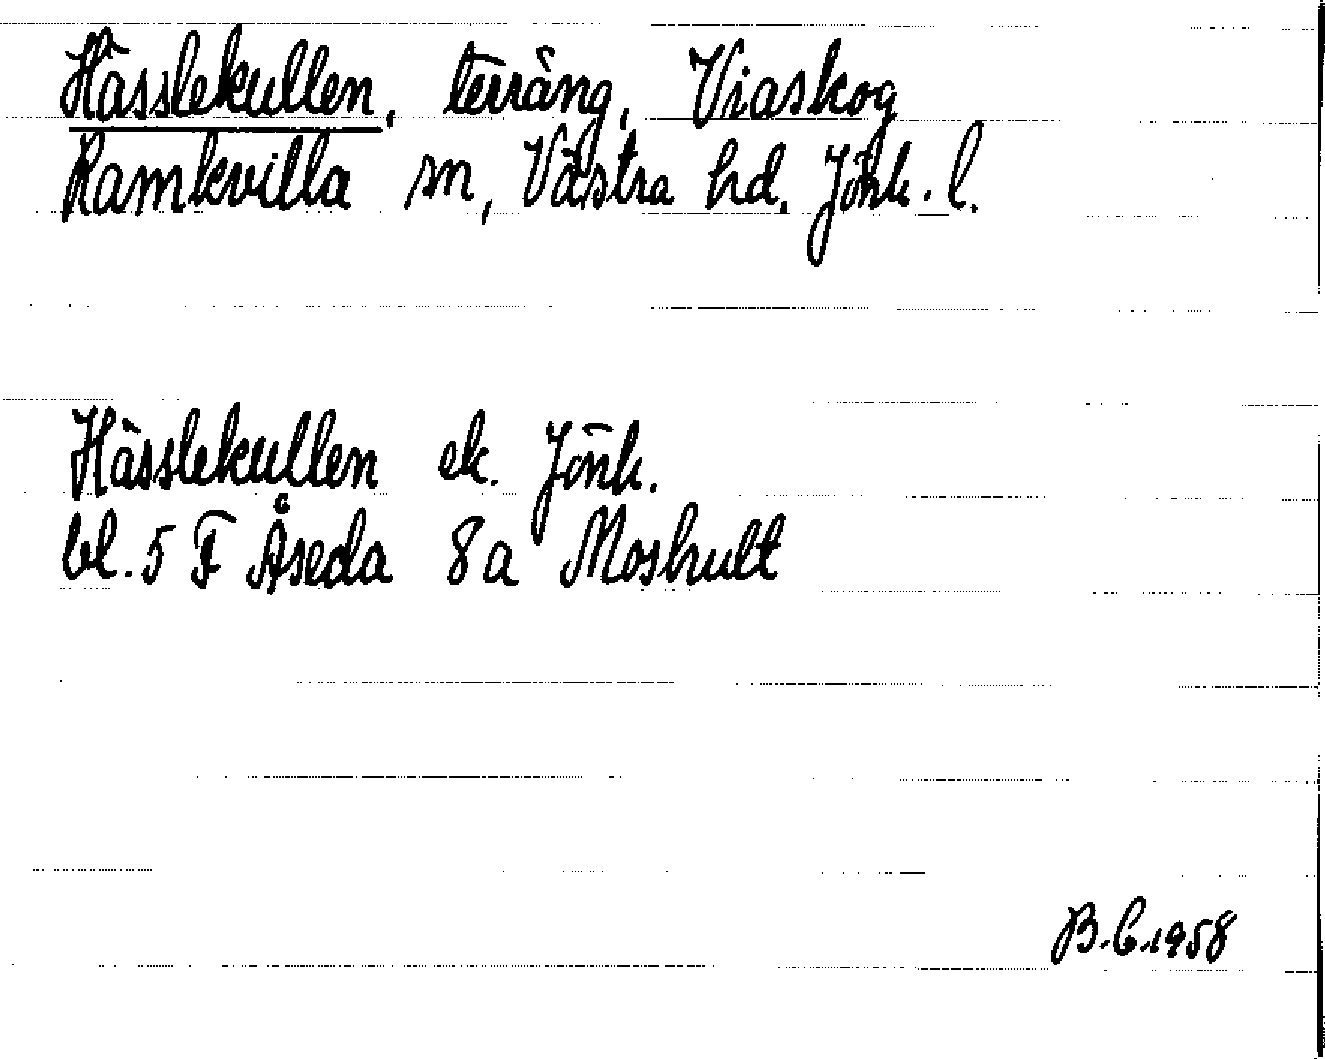 Hässlekullen, terräng, Viaskog
Ramkvilla sn, Västra hd. Jönk. l.
Hässlekullen ek. Jönk.
bl. 5 F Åseda 8 a Moshult
B.C. 1958